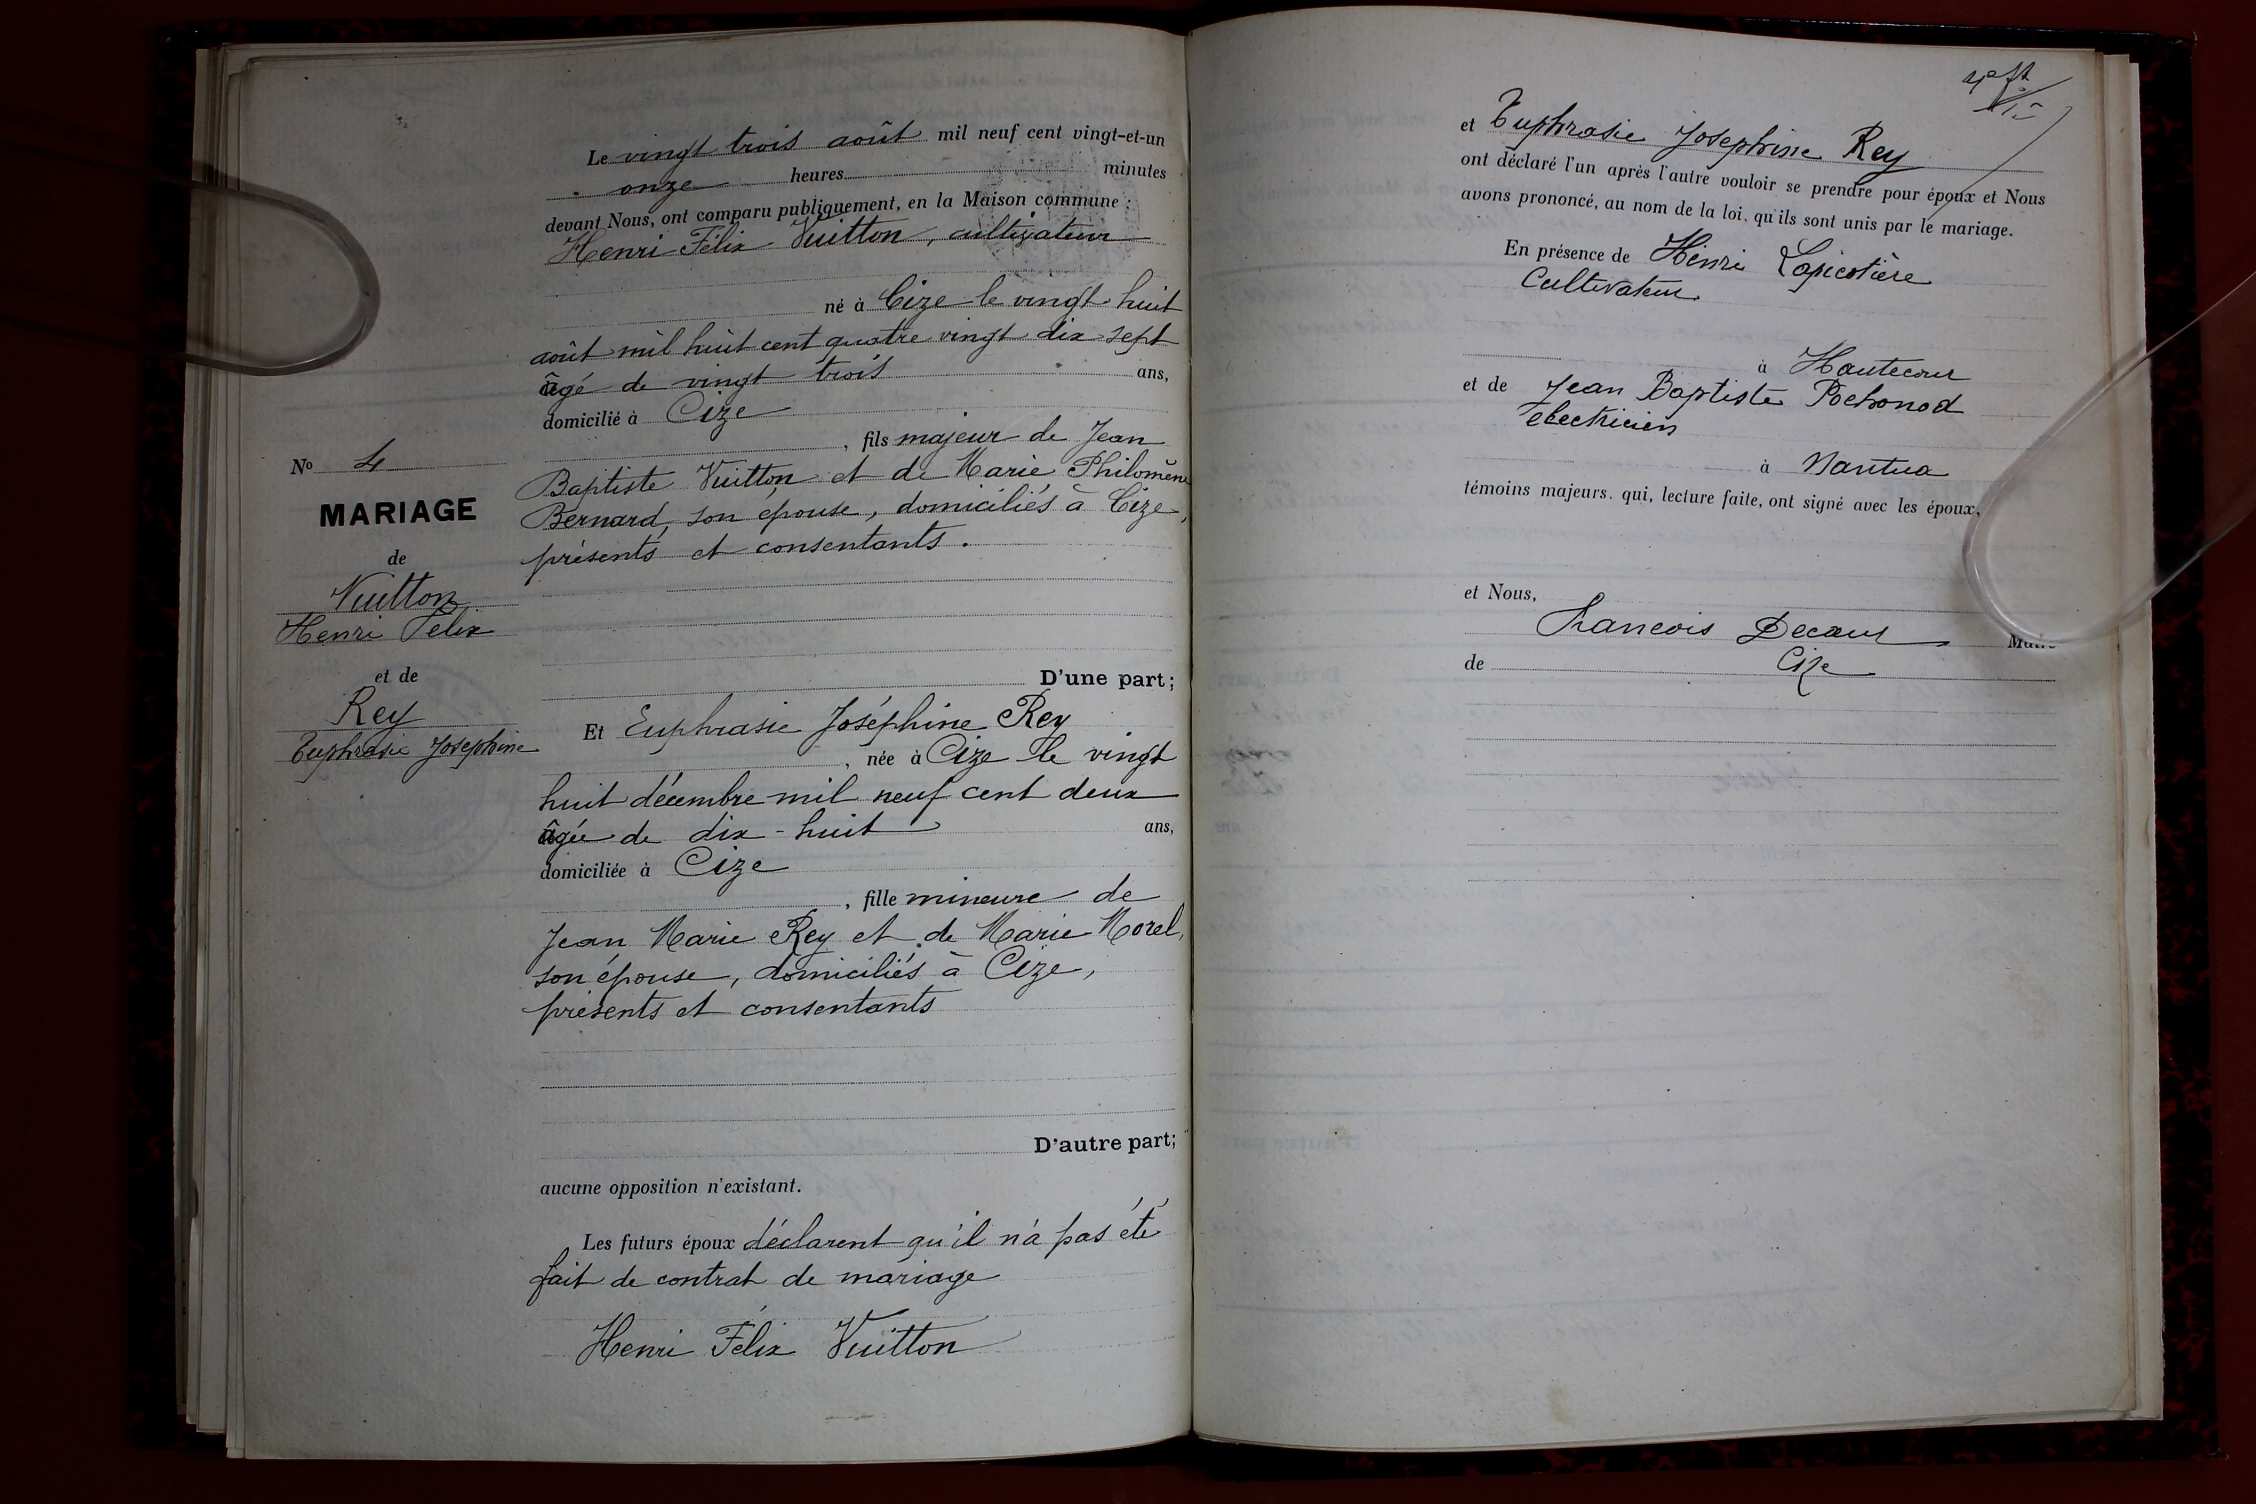 Le vingt trois août mil neuf cent vingt-et-un
onze heures minutes
devant Nous, ont comparu publiquement, en la Maison commune :
Henri Félix Vuitton, cultivateur
né à Cize le vingt huit
août mil huit cent quatre vingt dix sept
âgé de vingt trois ans,
domicilié à Cize
, fils majeur de Jean
Baptiste Vuitton et de Marie Philomène
Bernard, son épouse, domiciliés à Cize,
présents et consentants.
No 4
MARIAGE
de
Vuitton
Henri Félix
et de
Rey
Euphrasie Josephine
D'une part;
Et Euphrasie Joséphine Rey
, née à Cize le vingt
huit décembre mil neuf cent deux
âgée de dix-huit ans,
domiciliée à Cize
, fille mineure de
Jean Marie Rey et de Marie Morel,
son épouse, domiciliés à Cize,
présents et consentants
D'autre part;
aucune opposition n'existant.
Les futurs époux déclarent qu'il n'a pas été
fait de contrat de mariage
Henri Félix Vuitton
et Euphrasie Josephine Rey
ont déclaré l'un après l'autre vouloir se prendre pour époux et Nous
avons prononcé, au nom de la loi, qu'ils sont unis par le mariage.
En présence de Henri Lapicotière
Cultivateur
à Hautecour
et de Jean Baptiste Pochonod
electricien
à Nantua
témoins majeurs. qui, lecture faite, ont signé avec les époux,
et Nous,
Francois Decoeur Maire
de Cize